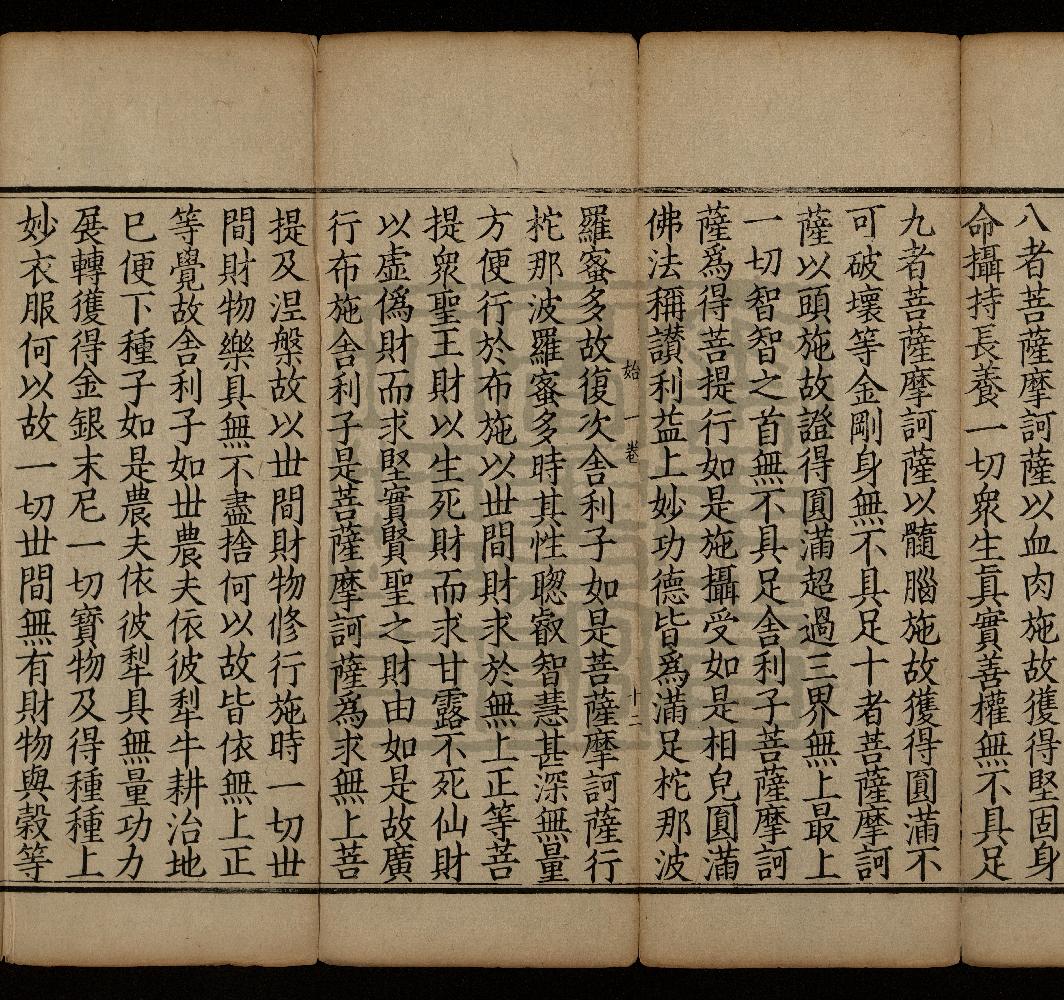 八者菩薩摩訶薩以血肉施故獲得堅固身
命攝持長養一切衆生真實善權無不具足
九者菩薩摩訶薩以髓腦施故獲得圓滿不
可破壞等金剛身無不具足十者菩薩摩訶
薩以頭施故證得圓滿超過三界無上最上
一切智智之首無不具足舍利子菩薩摩訶
薩爲得菩提行如是施攝受如是相皃圓滿
佛法稱讃利益上妙功德皆爲滿足柁那波
始一卷 十二
羅蜜多故復次舍利子如是菩薩摩訶薩行
柁那波羅蜜多時其性聰叡智慧甚深無量
方便行於布施以世間財求於無上正等菩
提衆聖王財以生死財而求甘露不死仙財
以虛僞財而求堅實賢聖之財由如是故廣
行布施舍利子是菩薩摩訶薩爲求無上菩
提及涅槃故以世間財物修行施時一切世
間財物樂具無不盡捨何以故皆依無上正
等覺故舍利子如世農夫依彼犁牛耕治地
已便下種子如是農夫依彼犁具無量功力
展轉獲得金銀末尼一切寶物及得種種上
妙衣服何以故一切世間無有財物與穀等